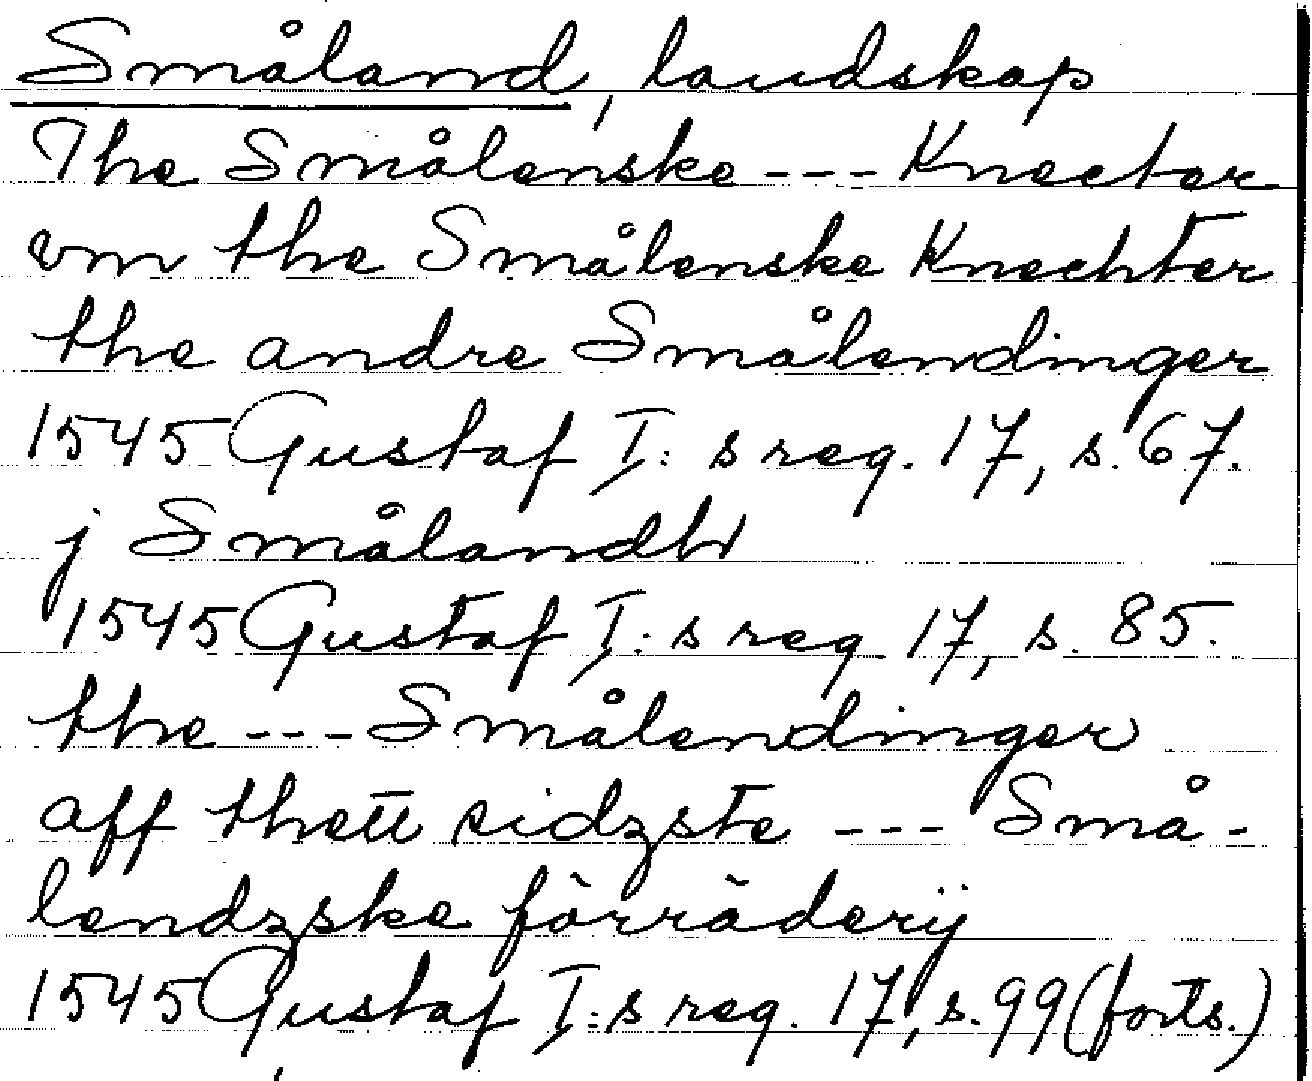 Småland, landskap
The Smålenske --- Knecter
vm the Smålenske Knechter
the andre Smålendinger
1545 Gustaf I:s reg. 17, s. 67.
j Smålandh
1545 Gustaf I:s reg. 17, s. 85.
the --- Smålendinger
aff thett sidzste --- Små-
lendzske förräderij
1545 Gustaf I:s reg. 17, s. 99 (forts.)